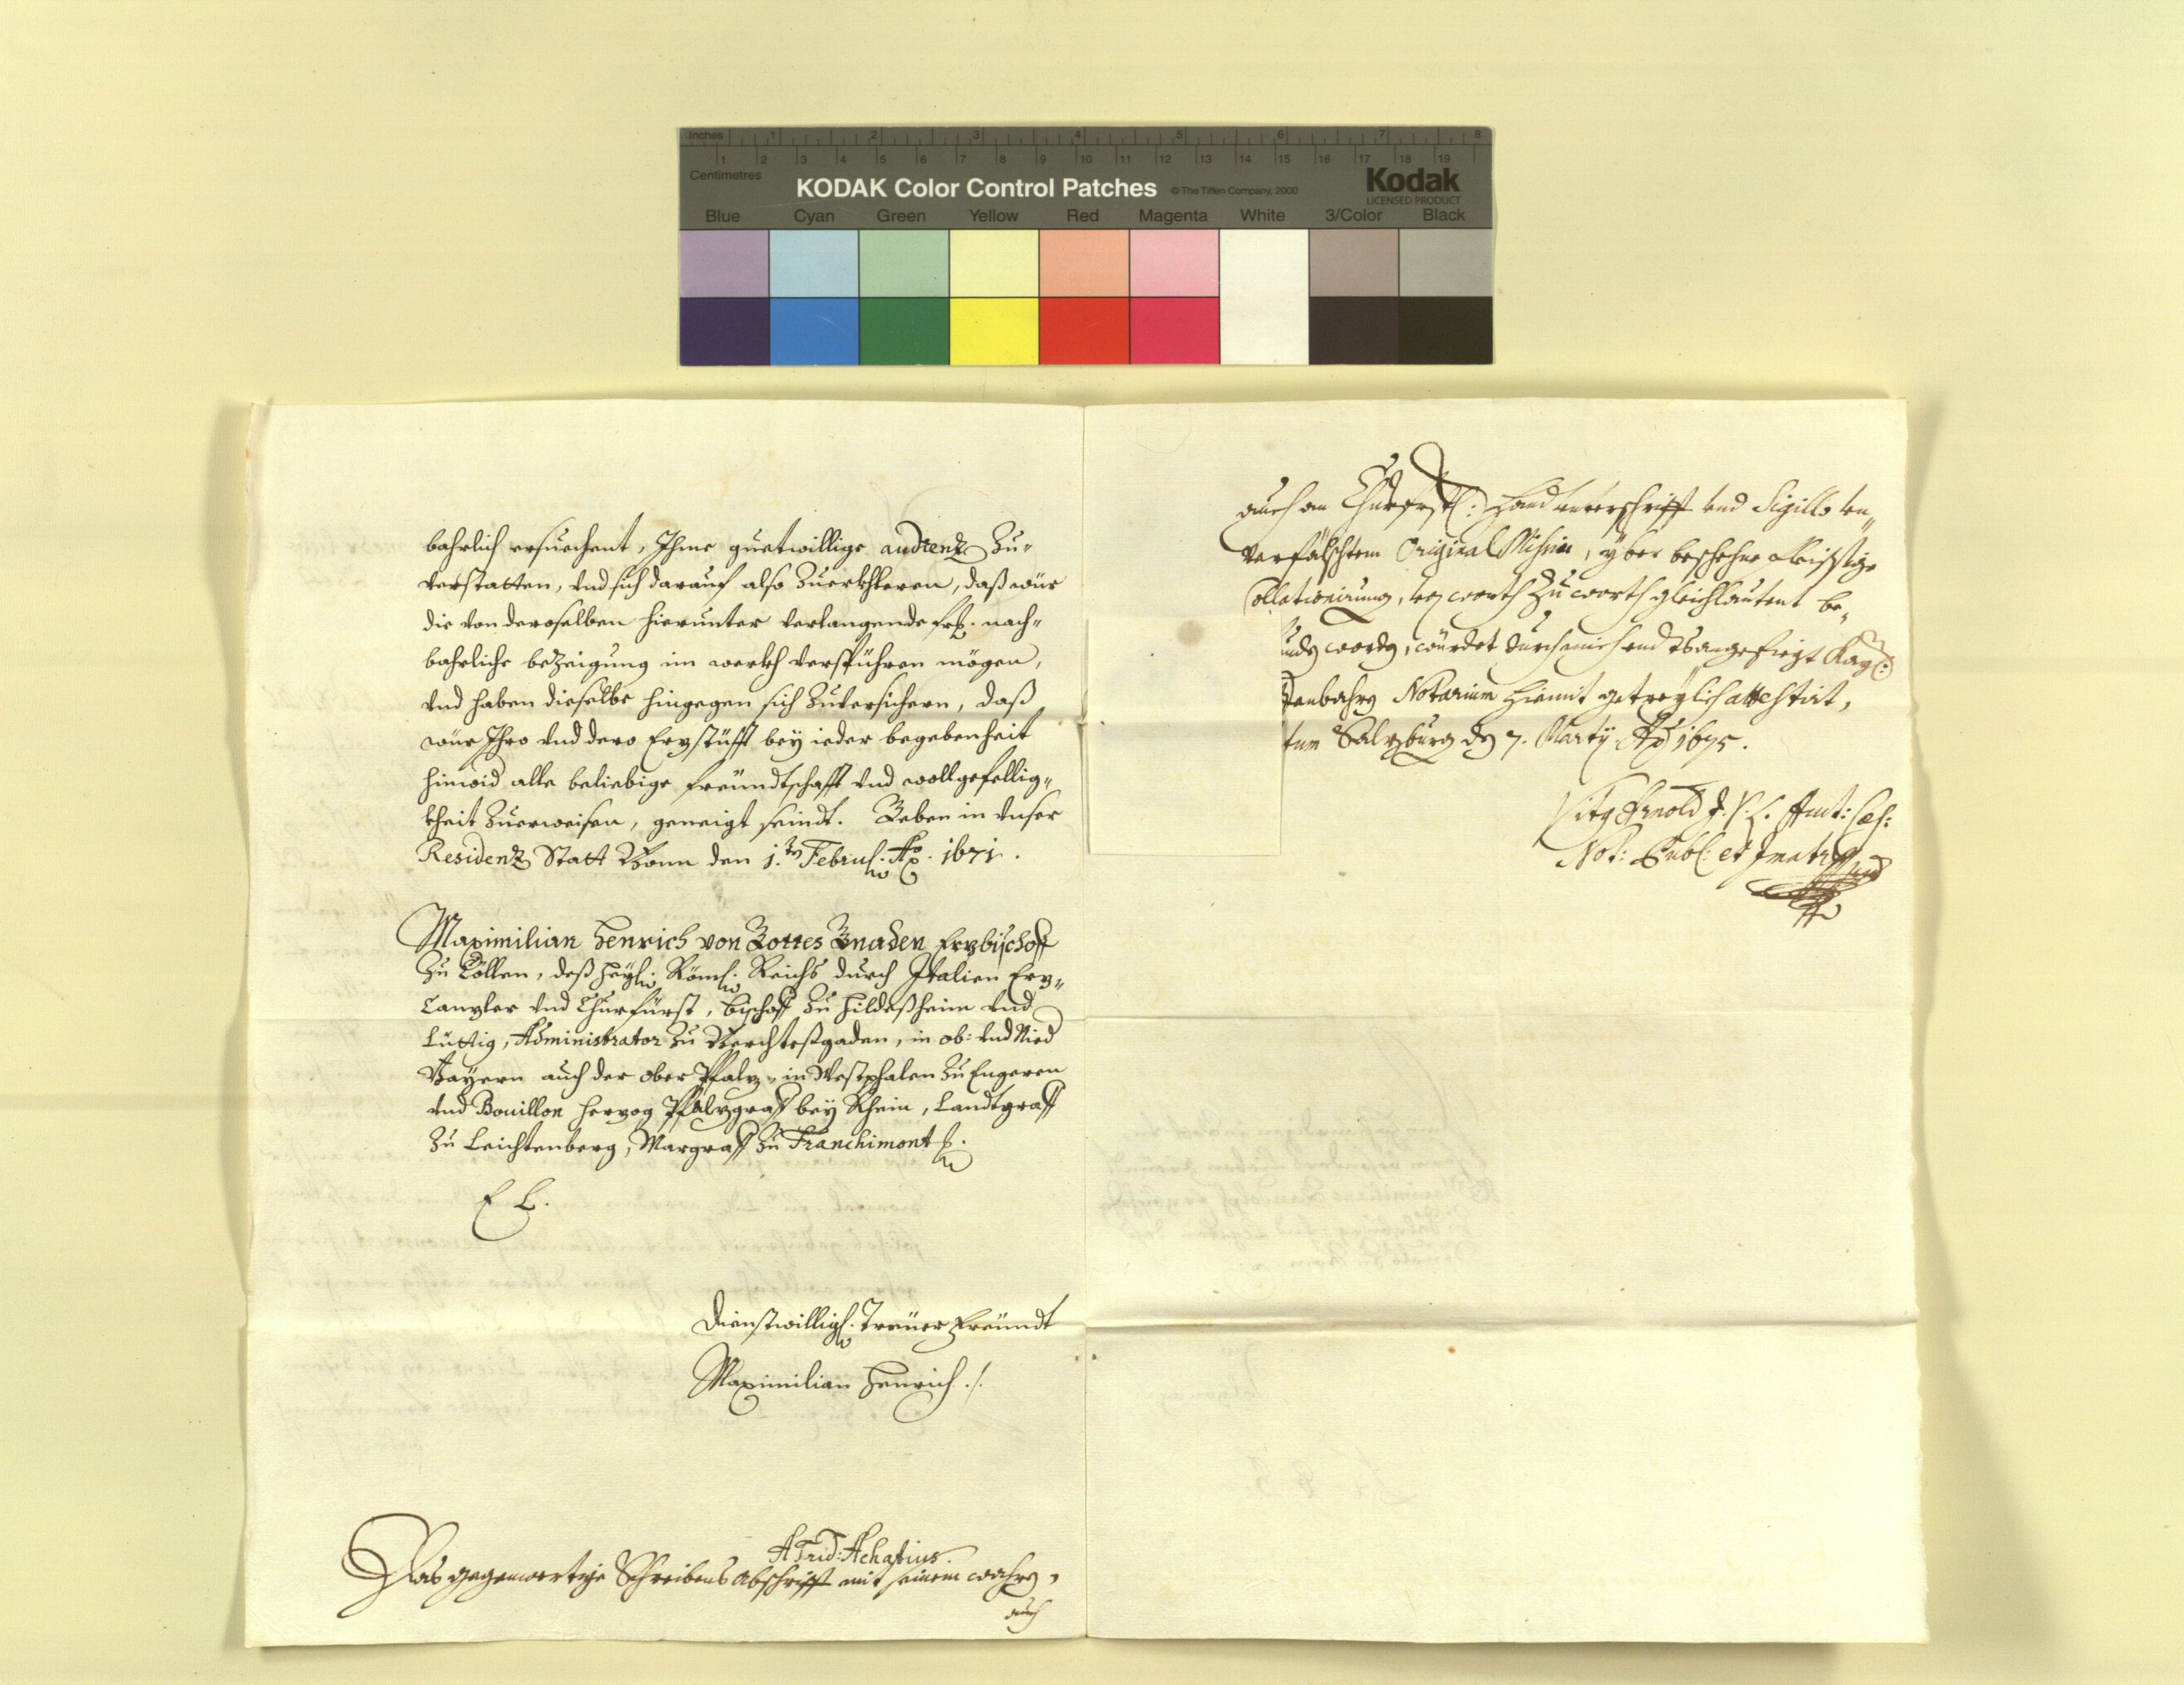 Inches 1 2 3 4 5 6 7 8
1 2 3 4 5 6 7 8 9 10 11 12 13 14 15 16 17 18 19
Centimetres
KODAK Color Control Patches © The Tiffen Company, 2000 Kodak
LICENSED PRODUCT
Blue Cyan Green Yellow Red Magenta White 3/Color Black
bahrlich ersuechent, Ihme guetwillige audienz Zu„
verstatten, vnd sich darauf also Zuerkhleren, daß wür
die von deroselben hierunter verlangende nach„
bahrliche beZeigung im werkh verspühren mögen,
vnd haben dieselbe hingegen sich Zuversichern, daß
wür Ihro vnd dero Erzstüfft bey ieder begebenheit
hinwid alle beliebige freündtschafft vnd wollgefellig„
kheit Zuerweisen, geneigt seindt. Geben in vnser
Residenz Statt Bonn den 1.ten Febru: Ao. 1671.
Maximilian Henrich von Gottes Gnaden Erzbischoff
Zu Cöllen, deß Heyl: Röm: Reichs durch Italien Erz„
Canzler vnd Churfürst, Bischoff Zu Hildeßheim vnd
Lüttig, Administrator Zu Berchteßgaden, in ob: vnd Nied
Bayern auch der ober Pfalz, in Westphalen Zu Engeren
vnd Bouillon Herzog Pfalzgraff bey Rhein, Landtgraff
Zu Leichtenberg, Margraff Zu Franchimont
E L.
Dienstwillig: Treüer Freündt
Maximilian Henrich ./.
Achatius.
Das gegenwertige Schreibens Abschrifft mit seinem wahren,
auch
auch an Churfrstl: Handtunterschrifft vnd Sigillo vn„
verfälschtem Original , yber beschehne fleissige
Collationirung, von worth Zu worth gleichlautent be„
worden, würdet durch mich end Kay:
Notarium hiemit getreylich attestirt,
Salzburg den 7. Marty Ao 1675.
Vitus Arnold Caes:
Not: Publ: et